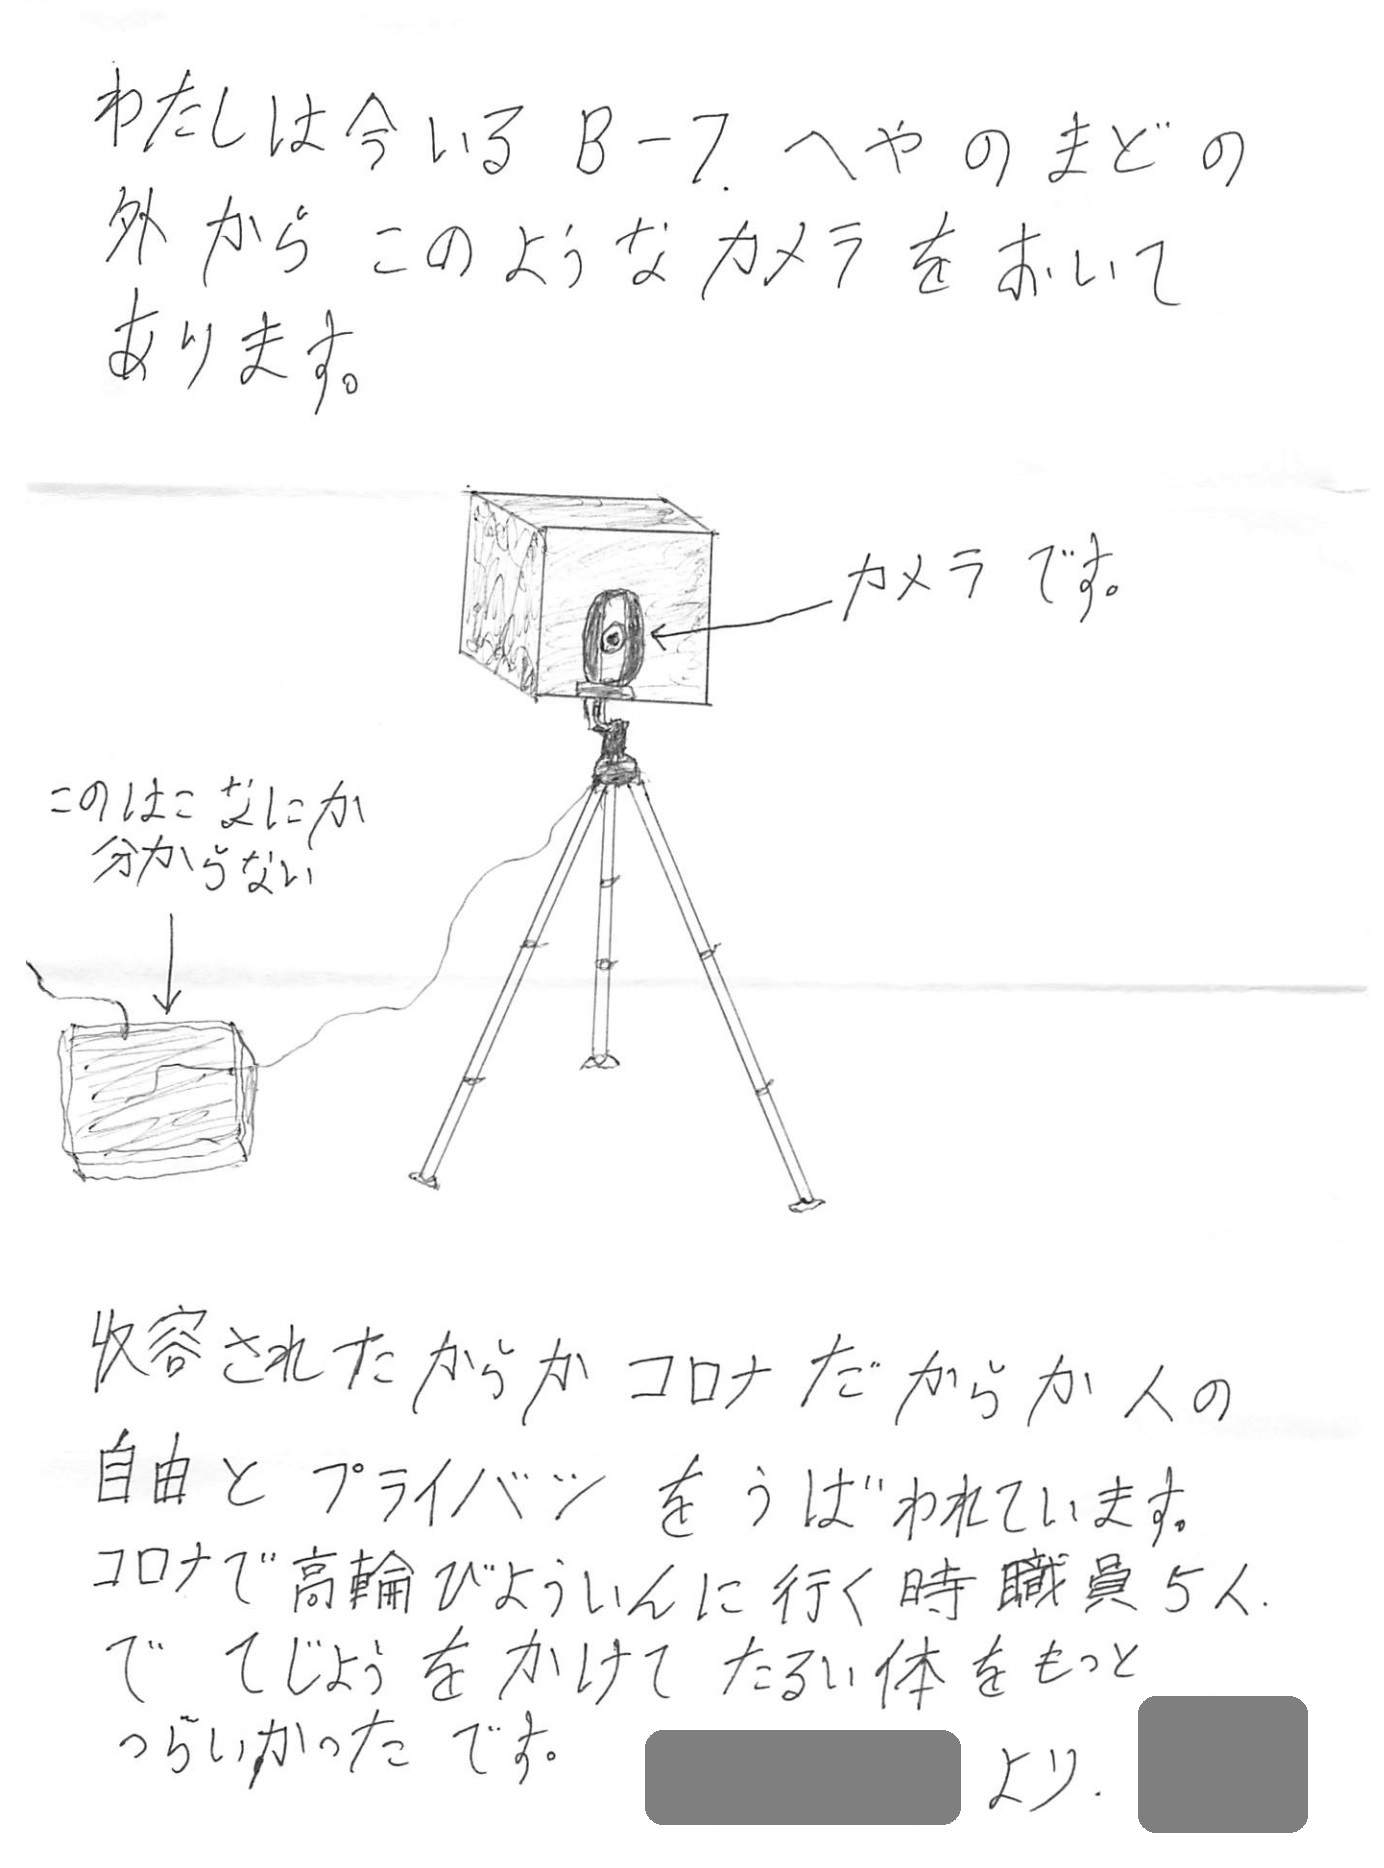 わたしは今いる B-7. へやのまどの
外から このような カメラを おいて
あります。
カメラ です。
このはこ なにか
分からない
収容されたからか コロナ だからか 人の
自由と プライバシ を うばわれています。
コロナで 高輪びよういんに 行く時 職員 5人.
で てじょうを かけて たるい 体を もっと
つらいかった です。
より.